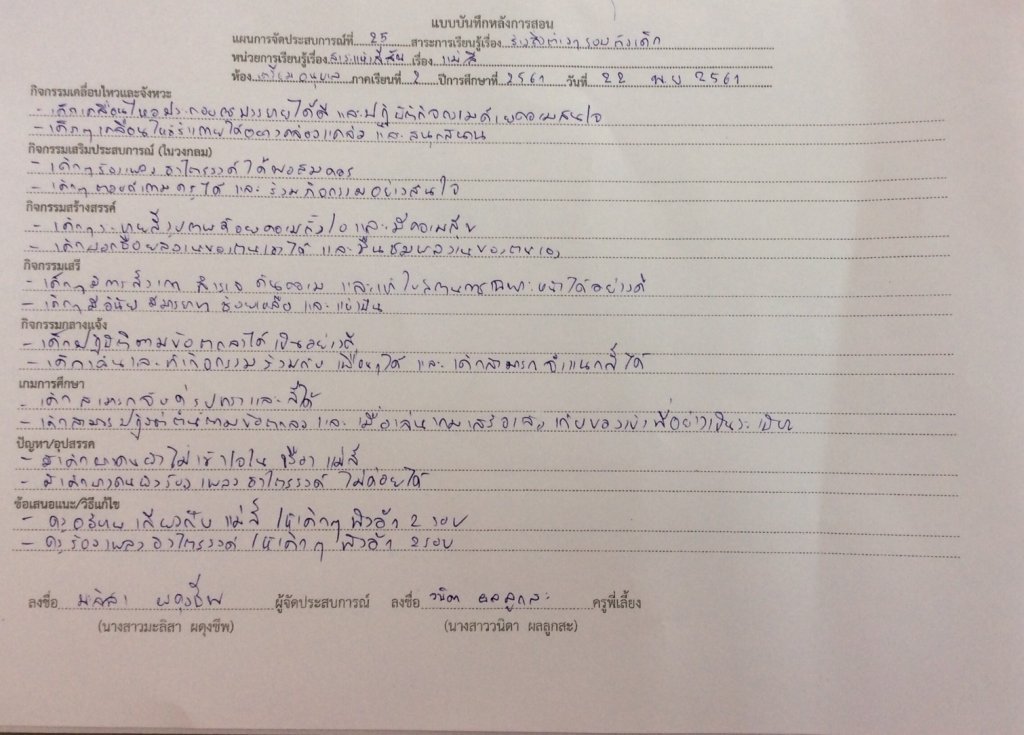 แบบบันทึกหลังการสอน
แผนการจัดประสบการณ์ที่ 25 สาระการเรียนรู้เรื่อง สิ่งต่างๆรอบตัวเด็ก
หน่วยการเรียนรู้เรื่อง สีสัน เรื่อง แม่สี
ห้อง เตรียมอนุบาล ภาคเรียนที่ 2 ปีการศึกษาที่ 2561 วันที่ 22 พ.ย 2561
กิจกรรมเคลื่อนไหวและจังหวะ
- เด็กเคลื่อนไหวประกอบการบรรยายได้ดี และปฏิบัติกิจกรรมด้วยความสนใจ
- เด็กๆเคลื่อนไหวร่างกายได้อย่างคล่องแคล่ว และสนุกสนาน
กิจกรรมเสริมประสบการณ์ (ในวงกลม)
- เด็กๆร้องเพลง ได้พอสมควร
- เด็กๆตอบคำถามครูได้ และ ร่วมกิจกรรมอย่างสนใจ
กิจกรรมสร้างสรรค์
- เด็กๆระบายสีรูปภาพด้วยความตั้งใจ และมีความสุข
- เด็กบอกชื่อผลงานของตนเองได้ และชื่นชมผลงานของตนเอง
กิจกรรมเสรี
- เด็กๆมีการสังเกต สำรวจ ค้นคว้า และแก้ไขสถานการณ์เฉพาะหน้าได้อย่างดี
- เด็กๆมีวินัย มีมารยาท ช่วยเหลือ และ แบ่งปัน
กิจกรรมกลางแจ้ง
- เด็กปฏิบัติตามข้อตกลงได้เป็นอย่างดี
- เด็กเล่นและทำกิจกรรมร่วมกับเพื่อนๆได้ และ เด็กสามารถจำแนกสีได้
เกมการศึกษา
- เด็กสามารถจับคู่รูปทรงและสีได้
- เด็กสามารถปฏิบัติตนตามข้อตกลง และ เมื่อเล่นเกมเสร็จแล้วเก็บของเข้าที่อย่างเป็นระเบียบ
ปัญหา/อุปสรรค
- มีเด็กบางคนยังไม่เข้าใจใน เรื่อง แม่สี
- มีเด็กบางคนยังร้องเพลง ไม่ค่อยได้
ข้อเสนอแนะ/วิธีแก้ไข
- ครูอธิบายเกี่ยวกับแม่สี ให้เด็กๆฟังอีก 2 รอบ
- ครูร้องเพลง ให้เด็กๆ ฟังอีก 2 รอบ
ลงชื่อ มะลิสา ผดุงชีพ ผู้จัดประสบการณ์ ลงชื่อ วนิดา ผลลูกสะ ครูพี่เลี้ยง
(นางสาวมะลิสา ผดุงชีพ) (นางสาววนิดา ผลลูกสะ)